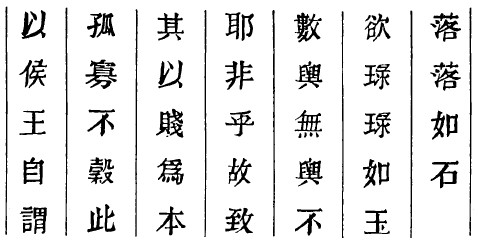 以侯王自謂
孤寡不穀此
其以賤爲本
耶非乎故致
數輿無輿不
欲琭琭如玉
落落如石